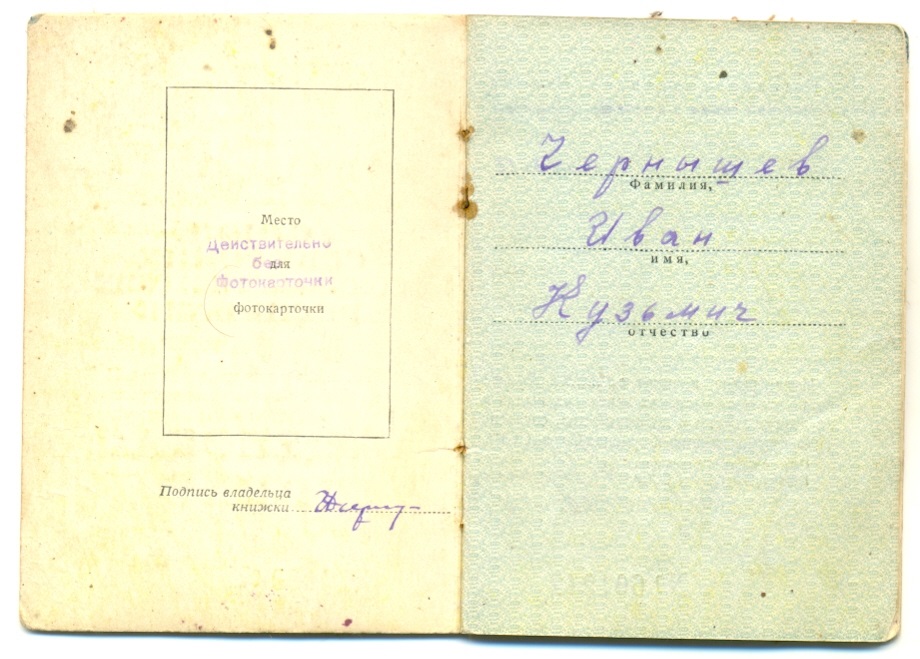 Место
Действительно
для
без
фотокарточки
фотокарточки
Подпись владельца
книжки
Чернышев
Фамилия,
Иван
имя,
Кузьмич
отчество